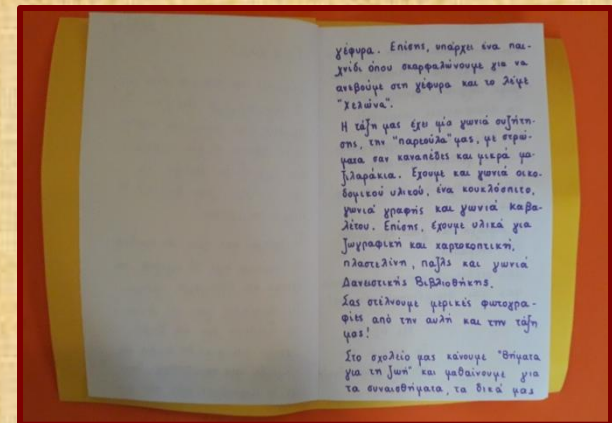 γέφυρα. Επίσης, υπάρχει ένα παι-
χνίδι όπου σκαρφαλώνουμε για να
ανεβούμε στη γέφυρα και το λέμε
"Χελώνα".
Η τάξη μας έχει μία γωνιά συζήτη-
σης, την "παρεούλα" μας, με στρώ-
ματα σαν καναπέδες και μικρά μα-
ξιλαράκια. Έχουμε και γωνιά οικο-
δομικού υλικού, ένα κουκλόσπιτο,
γωνιά γραφής και γωνιά καβα-
λέτου. Επίσης, έχουμε υλικά για
ζωγραφική και χαρτοκοπτική,
πλαστελίνη, παζλς και γωνιά
Δανειστικής Βιβλιοθήκης.
Σας στέλνουμε μερικές φωτογρα-
φίες από την αυλή και την τάξη
μας!
Στο σχολείο μας κάνουμε "Βήματα
για τη ζωή" και μαθαίνουμε για
τα συναισθήματα, τα δικά μας